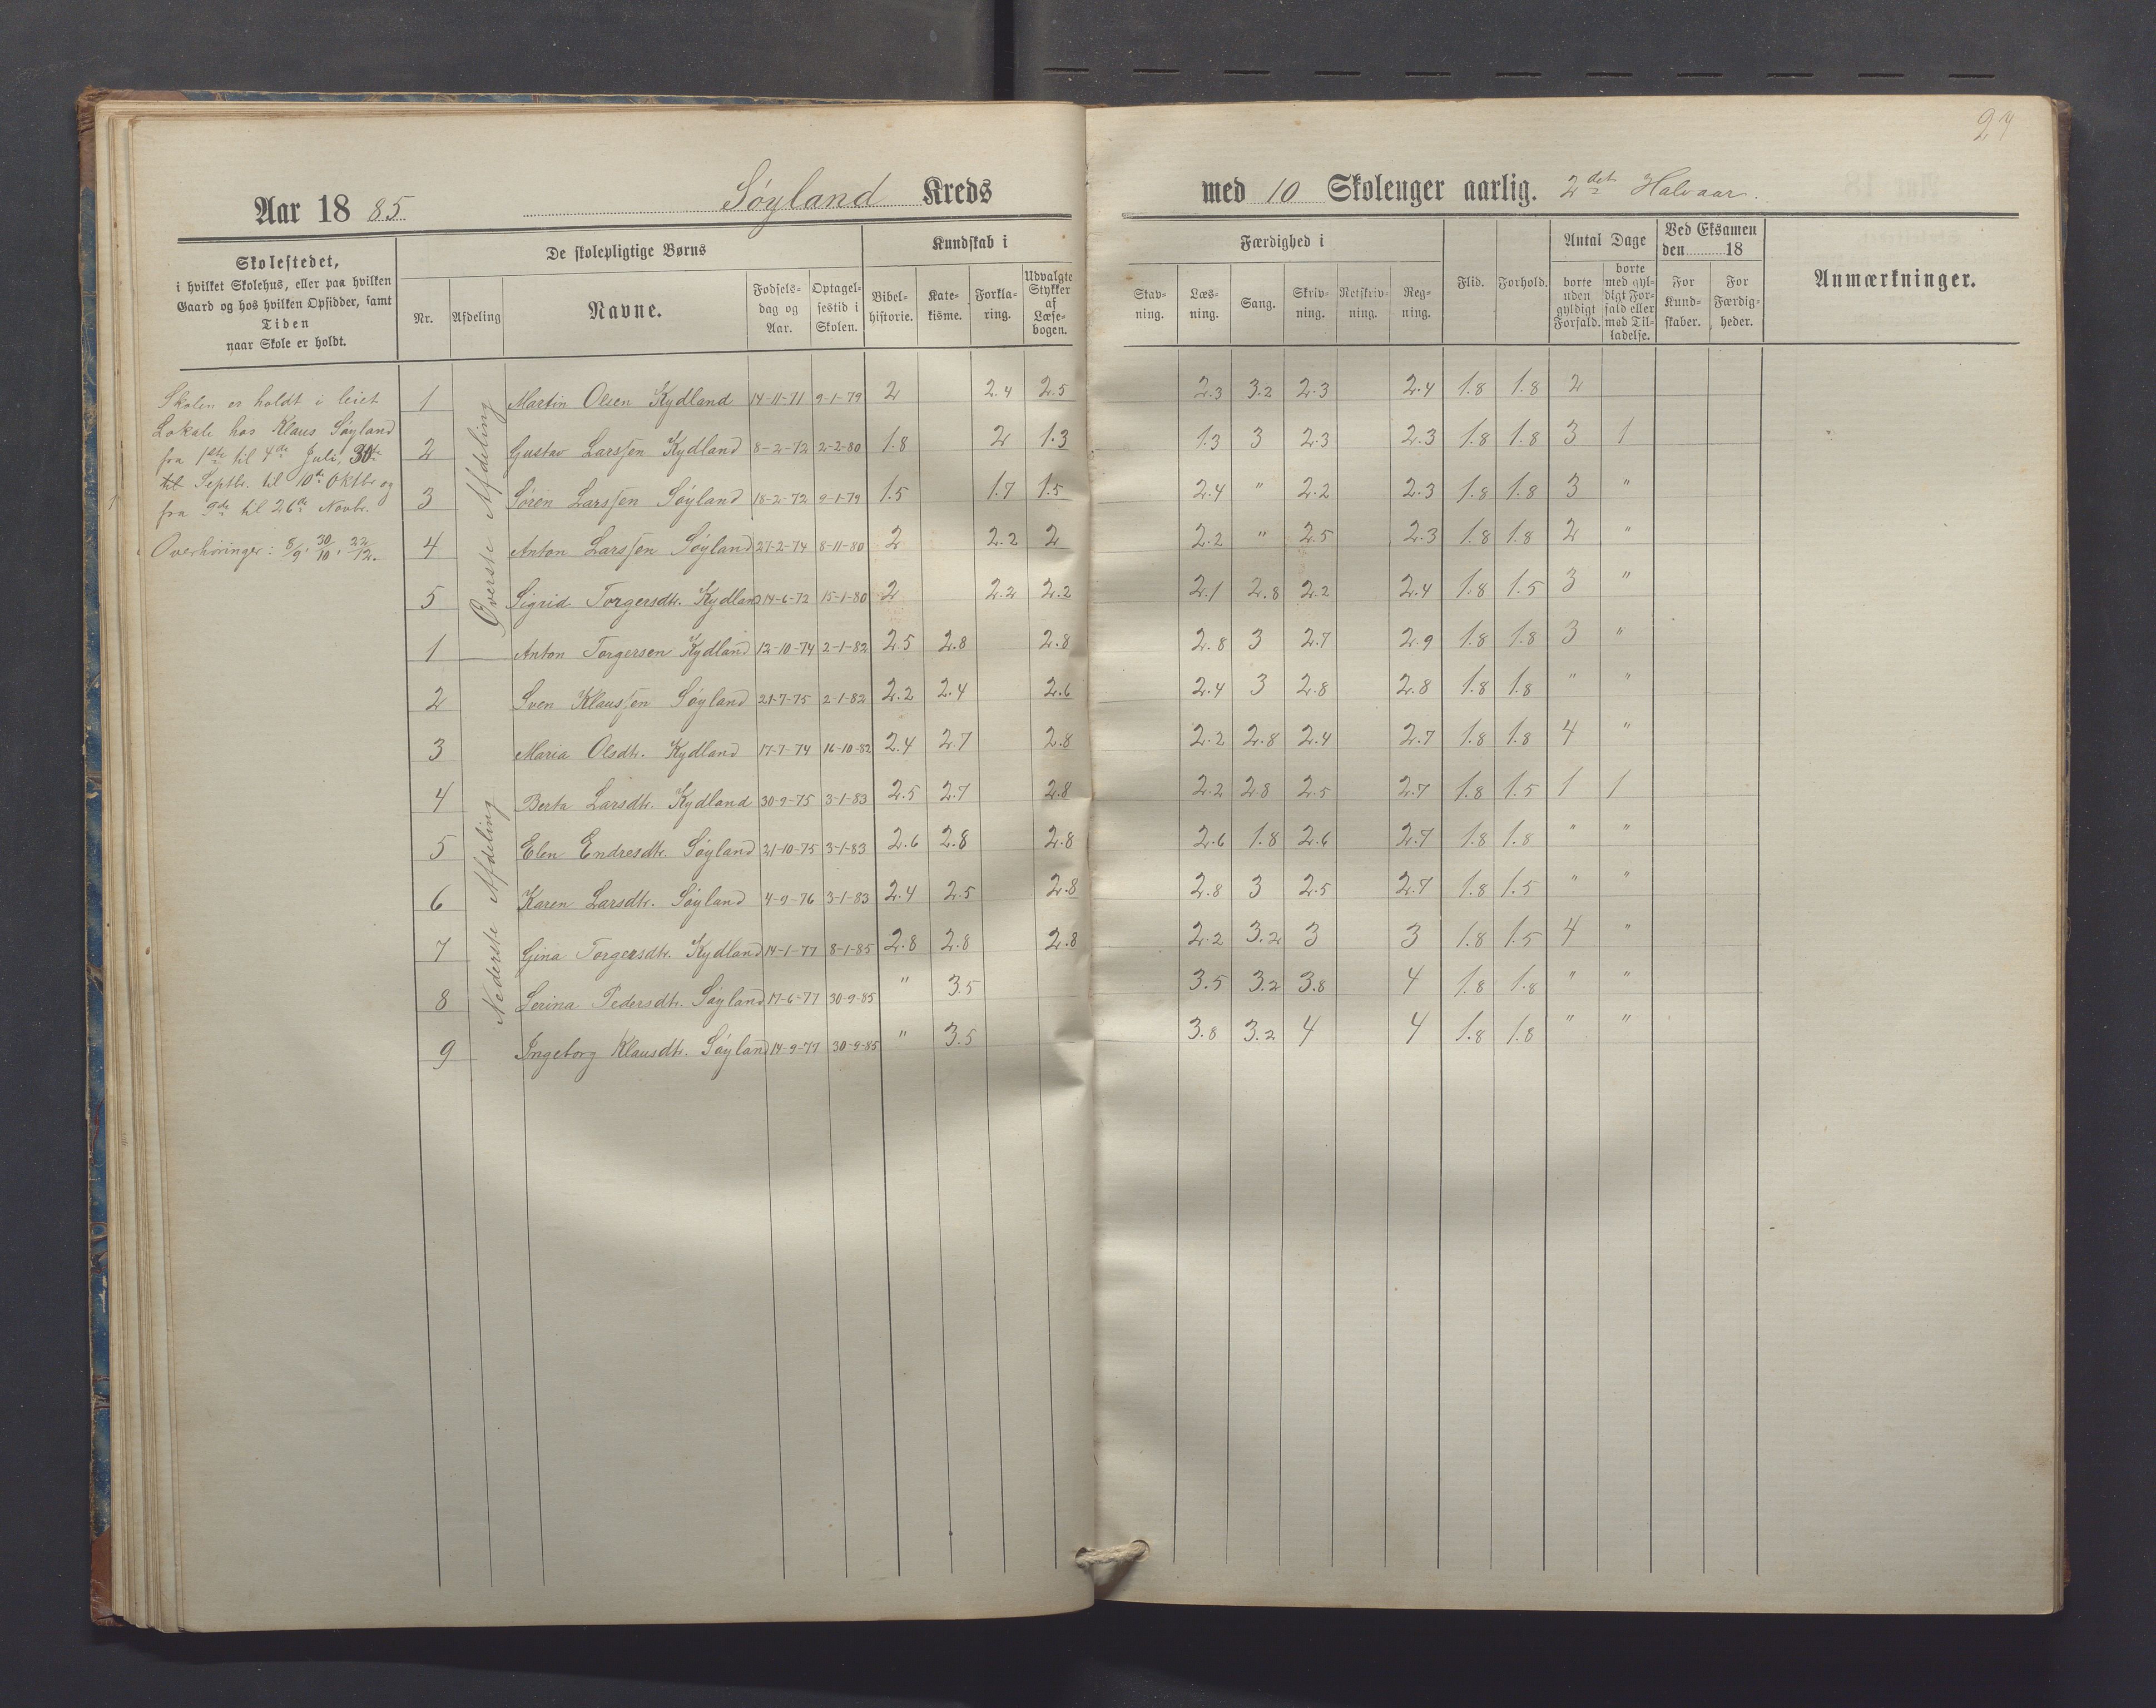 27
Aar 1885. Søyland Kreds med 10 Skolenger aarlig. 2det Halvaar.
Skolestedet,
i hvilket Skolehus, eller paa hvilken
Gaard og hos hvilken Opsidder, samt
Tiden
naar Skole er holdt.
De skolepligtige Børns
Nr. Afdeling Navne. Fødsels-dag og Aar. Optagel-sestid i Skolen.
Kundskab i
Bibel-historie. Kate-kisme. Forkla-ring. Udvalgte Stykker af Læse-bogen.
Færdighed i
Stav-ning. Læs-ning. Sang. Skriv-ning. Retskriv-ning. Reg-ning.
Flid. Forhold.
Antal Dage
borte uden gyldigt Forfald. borte med gyl-digt For-fald eller med Til-ladelse.
Ved Eksamen den 18
For Kund-skaber. For Færdig-heder.
Anmærkninger.
Skolen er holdt i leiet
Lokale hos Klaus Søyland
fra 1ste til 4de Juli, 30te
til Septbr. til 10de Oktbr. og
fra 9de til 26de Novbr.
Overhøringer: 8/9, 30/10, 22/12.
Øverste Afdeling
1 Martin Olsen Kydland 14-11-71 9-1-79 2 2.4 2.5 2.3 3.2 2.3 2.4 1.8 1.8 2
2 Gustav Larssen Kydland 8-2-72 2-2-80 1.8 2 1.3 1.3 3 2.3 2.3 1.8 1.8 3 1
3 Søren Larssen Søyland 18-2-72 9-1-79 1.5 1.7 1.5 2.4 " 2.2 2.3 1.8 1.8 3 "
4 Anton Larssen Søyland 27-2-74 8-11-80 2 2.2 2 2.2 " 2.5 2.3 1.8 1.8 2 "
5 Sigrid Torgersdtr. Kydland 14-6-72 15-1-80 2 2.2 2.2 2.1 2.8 2.2 2.4 1.8 1.5 3 "
Nederste Afdeling
1 Anton Torgersen Kydland 12-10-74 2-1-82 2.5 2.8 2.8 2.8 3 2.7 2.9 1.8 1.8 3 "
2 Sven Klaussen Søyland 21-7-75 2-1-82 2.2 2.4 2.6 2.4 3 2.8 2.8 1.8 1.8 " "
3 Maria Olsdtr. Kydland 17-7-74 16-10-82 2.4 2.7 2.8 2.2 2.8 2.4 2.7 1.8 1.8 4 "
4 Berta Larsdtr. Kydland 30-9-75 3-1-83 2.5 2.7 2.8 2.2 2.8 2.5 2.7 1.8 1.5 1 1
5 Elen Endresdtr. Søyland 21-10-75 3-1-83 2.6 2.8 2.8 2.6 1.8 2.6 2.7 1.8 1.8 " "
6 Karen Larsdtr. Søyland 4-9-76 3-1-83 2.4 2.5 2.8 2.8 3 2.5 2.7 1.8 1.5 " "
7 Gina Torgersdtr. Kydland 14-1-77 8-1-85 2.8 2.8 2.8 2.2 3.2 3 3 1.8 1.5 4 "
8 Serina Pedersdtr. Søyland 17-6-77 30-9-85 " 3.5 3.5 3.2 3.8 4 1.8 1.8 " "
9 Ingeborg Klausdtr. Søyland 14-9-77 30-9-85 " 3.5 3.8 3.2 4 4 1.8 1.8 " "